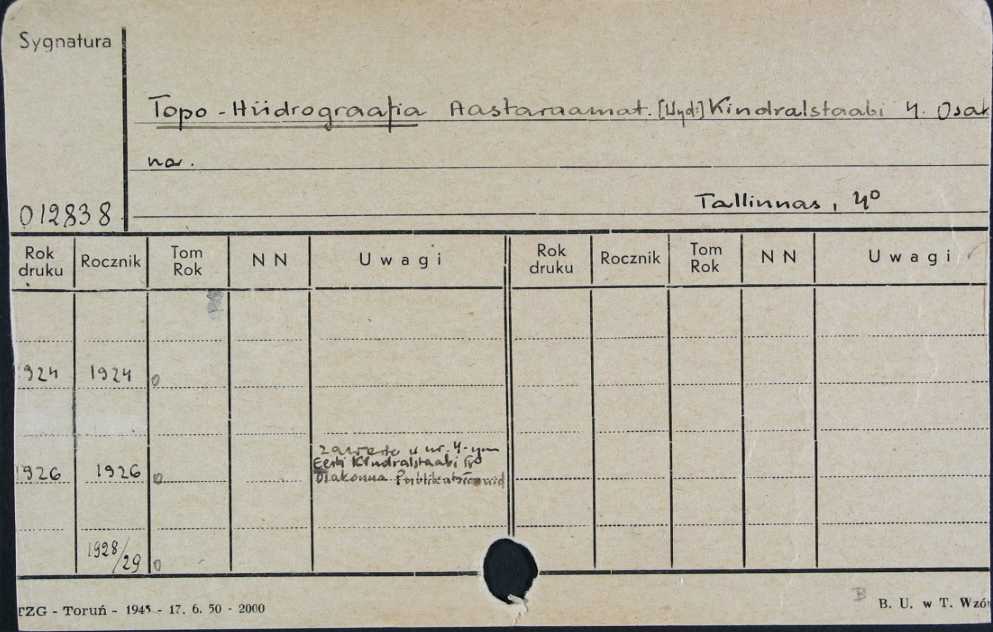 Sygnatura
Topo-Hüdrograafia Aastaraamat. [Wyd:] Kindralstaabi 4. Osak
na.
012838 Tallinnas, 4º
Rok druku Rocznik Tom Rok NN Uwagi Rok druku Rocznik Tom Rok NN Uwagi
1924 1924 0
zawarte w nr. 4-ym
1926 1926 0 Eesti Kindralstaabi
Osakonna
1928/29 0
TZG - Toruń - 1945 - 17. 6. 50 - 2000 B B. U. w T. Wzór